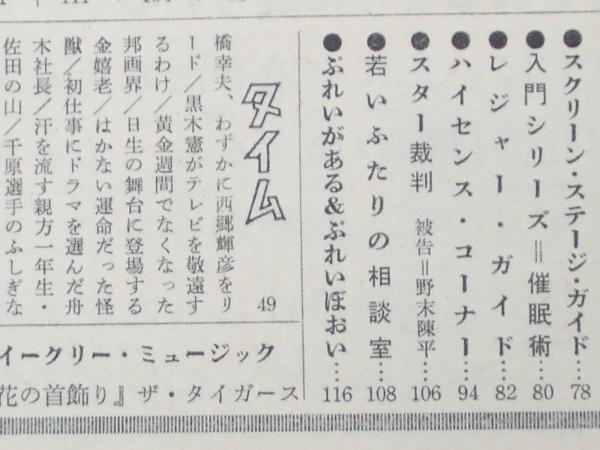 ●スクリーン・ステージ・ガイド…78
●入門シリーズ＝催眠術…80
●レジャー・ガイド…82
●ハイセンス・コーナー…94
●スター裁判 被告＝野末陳平…106
●若いふたりの相談室…108
●ぷれいがある&ぷれいぼおい…116
タイム
49
橋幸夫、わずかに西郷輝彦をリ
ード/黒木憲がテレビを敬遠す
るわけ/黄金週間でなくなった
邦画界/日生の舞台に登場する
金嬉老/はかない運命だった怪
獣/初仕事にドラマを選んだ舟
木社長/汗を流す親方一年生・
佐田の山/千原選手のふしぎな
イークリー・ミュージック
花の首飾り』ザ・タイガース